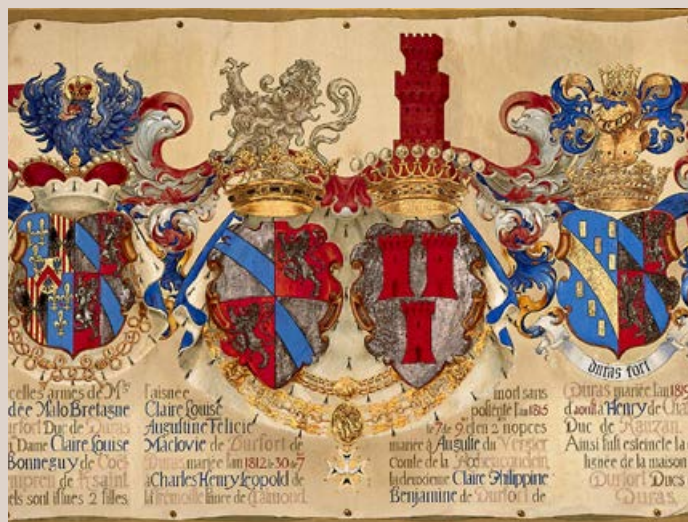 duras fort
celles armes de Mre
dée Malo Bretagne
Durfort Duc de Duras
Dame Claire Louise
Bonneguy de Coet
empren de Ksaint
els sont issues 2 filles
l'aisnée
Claire Louise
Augustine Felicie
Maclovie de Durfort de
Duras mariée l'an 1812 le 30 7
à Charles Henry Leopold de
la Trémoille Prince de
mort sans
postérité l'an 1815
le 7 9 en 2 nopces
mariée à Auguste du Vergier
Comte de la
la deuxieme Claire Philippine
Benjamine de Durfort de
Duras mariée l'an 1819
d'aoust à Henry de Cha
Duc de Rauzan.
Ainsi fust esteincte la
lignée de la maison
Durfort Ducs
Duras.